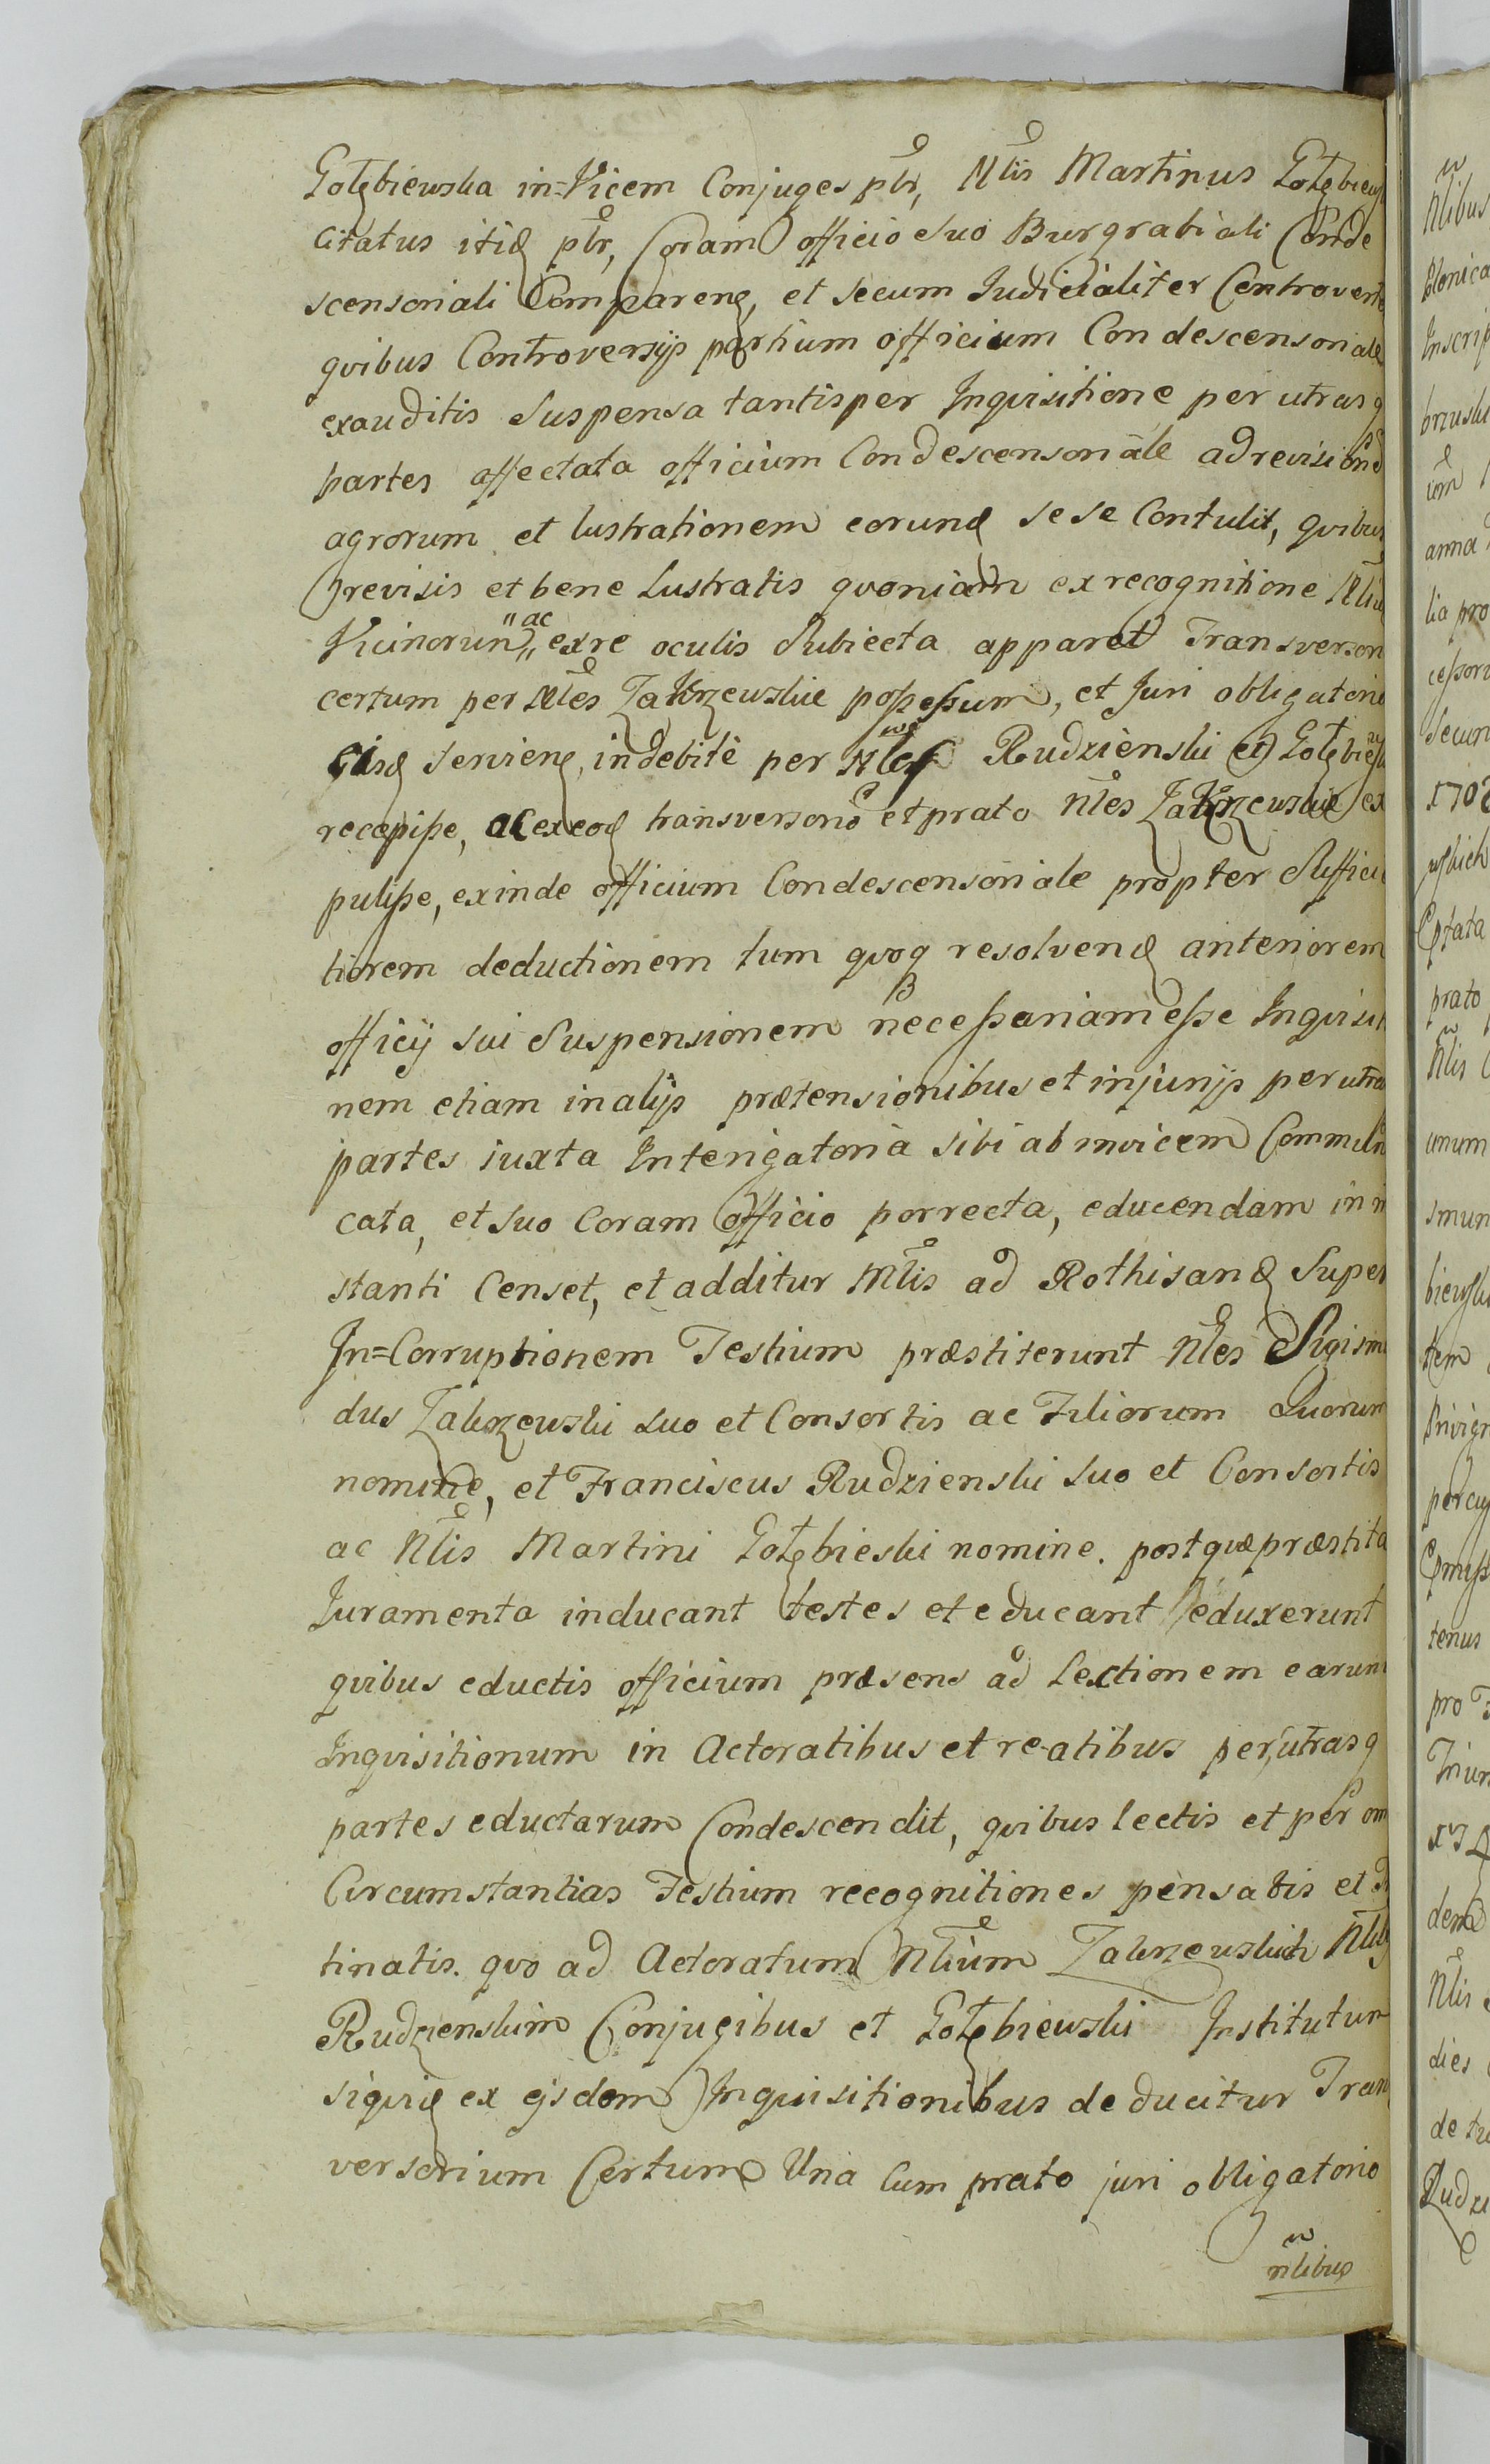 Gołębiewska in=Vicem Conjuges pbr, Nblis Martinus Gołębiews
Citatus itid pbr, Coram officio suo Burgrabiali Conde
scensoriali Comparenẹ, et secum Judicialiter Controverte
qvibus Controversijs partium officium Condescensoriale
exauditis suspensa tantisper Inqvisitione per utrasq
partes affectata officium Condescensoriale ad revision
agrorum et lustrationem eorund sese Contulit, qvibus
revisis et bene Lustratis qvoniam ex recognitione Nbliu
Vicinorum "ac" exre oculis Subiecta apparet Transverson
certum per Nbles Zakrzewskie possessum, et Juri obligatorio
Eisd serviend, indebitè per Nbles Rudzienski et Gołębiewsk
recepisse, ac exeod transversorio et prato Nbles Zakrzewskie ex
pulisse, exinde officium Condescensoriale propter Sufficie
tiorem deductionem tum qvoq resolvend anteriorem
officij sui Suspensionem necessariam esse Inqvisit
nem etiam in alijs prætensionibus et injurijs per utra
partes iuxta Interigatoria sibi ab invicem Commun
cata, et suo Coram officio porrecta, educendam in in
stanti Censet, et additur Mblis ad Rothisand Super
In=Corruptionem Testium præstiterunt Nbles Sigism
dus Zakrzewski suo et Consortis ac Filiorum Quorum
nomine, et Franciscus Rudzienski suo et Consortis
ac Nblis Martini Gołębieski nomine. post qvæ præstita
Juramenta inducant testes et educant eduxerunt
qvibus eductis officium præsens ad Lectionem earum
Inqvisitionum in Actoratibus et reatibus per utrasq
partes eductarum Condescendit, qvibus lectis et per om
Circumstantias Testium recognitiones pensatis et
tinatis. qvo ad Actoratum Nblium Zakrzewskich Nblib
Rudzienskim Conjugibus et Gołębiewski Institutum
siqvid ex ejsdem Inquisitionibus deducitur Trans
versorium Certum Una Cum prato juri obligatorio
nlibus
Nlibus
Inscrip
anna
lia pro
cessori
Secun
1702
prato
Nlis
unum
smun
tem
tenus
pro
dem
Nlis
dies
de
Rudzi